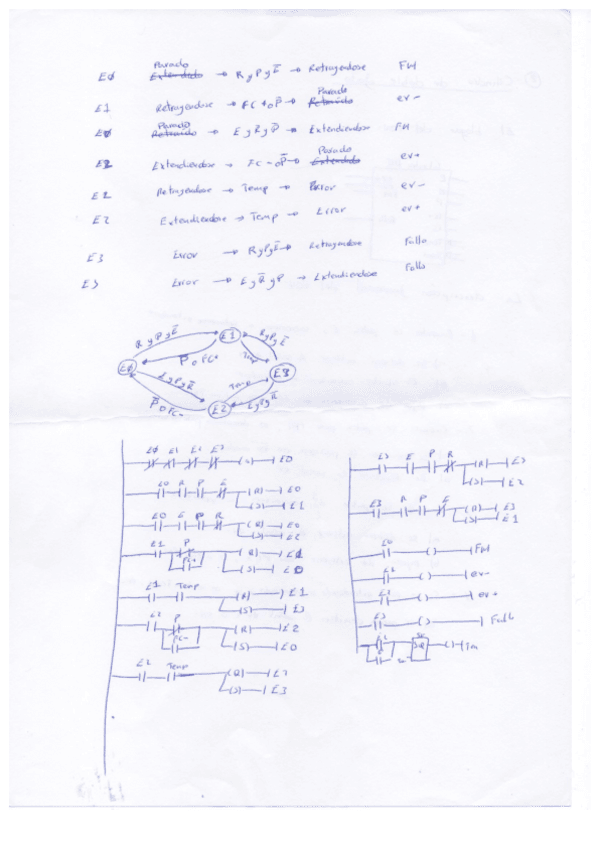 E0 Parado Extendido → R y P y E̅ → Retrayendose FH
E1 Retrayendose → FC+ o P̅ → Parado Retraido ev-
E0 Parado Retraido → E y R̅ y P → Extendiendose FH
E2 Extendiendose → FC- o P̅ → Parado Extendido ev+
E1 Retrayendose → Temp → Error ev-
E2 Extendiendose → Temp → Error ev+
E3 Error → R y P y E̅ → Retrayendose Fallo
E3 Error → E y R̅ y P → Extendiendose Fallo
R y P y E̅
E1
R y P y E̅
P̅ o FC+
Temp
E0
E3
E y P y R̅
Temp
P̅ o FC-
E2
E y P y R̅
E0 E1 E2 E3 (S) E0
E0 R P E (R) E0
(S) E1
E0 E P R (R) E0
(S) E2
E1 P (R) E1
FC+ (S) E0
E1 Temp (R) E1
(S) E3
E2 P (R) E2
FC- (S) E0
E2 Temp (R) E2
(S) E3
E3 E P R (R) E3
(S) E2
E3 R P E (R) E3
(S) E1
E0 ( ) FH
E1 ( ) ev-
E2 ( ) ev+
E3 ( ) Fallo
E1 ( ) Tm
E2